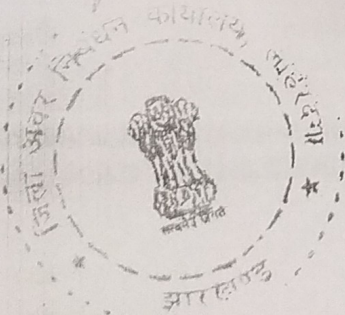 जिला अवर निबंधन कार्यालय, लोहरदगा
सत्यमेव जयते
झारखण्ड